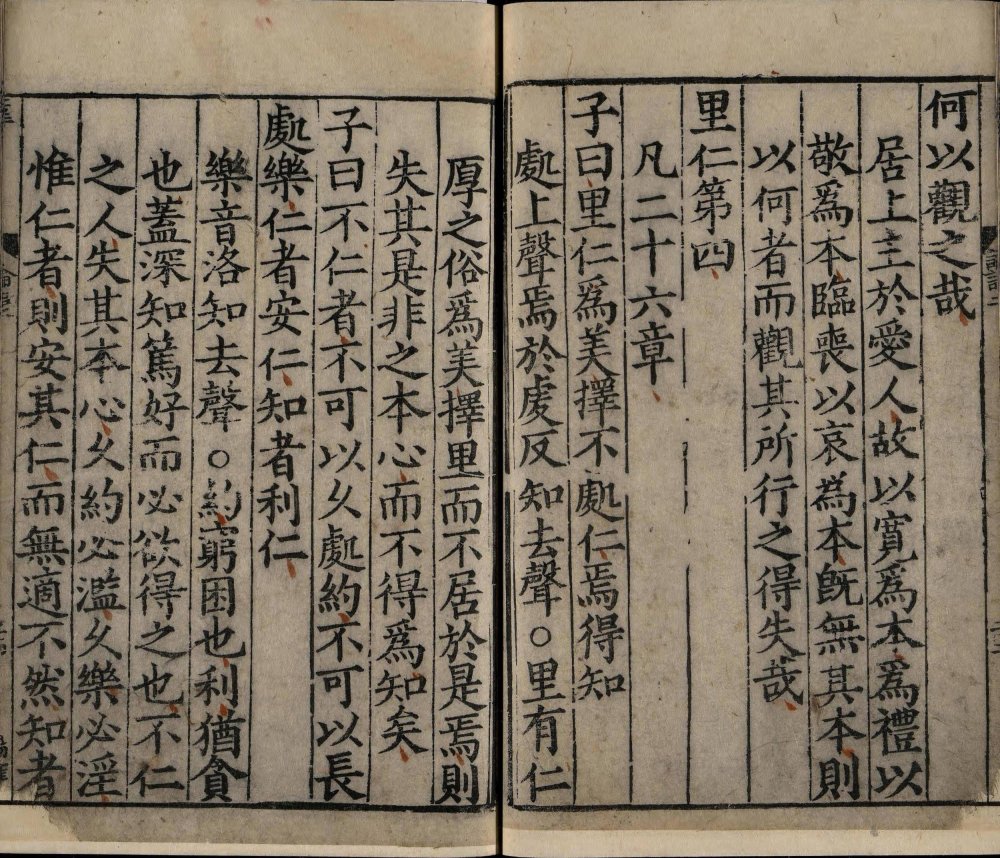 何以觀之哉
居上主於愛人故以寬爲本爲禮以
敬爲本臨喪以哀爲本旣無其本則
以何者而觀其所行之得失哉
里仁第四
凡二十六章
子曰里仁爲美擇不處仁焉得知
處上聲焉於虔反知去聲○里有仁
厚之俗爲美擇里而不居於是焉則
失其是非之本心而不得爲知矣
子曰不仁者不可以久處約不可以長
處樂仁者安仁知者利仁
樂音洛知去聲○約窮困也利猶貪
也蓋深知篤好而必欲得之也不仁
之人失其本心久約必濫久樂必淫
惟仁者則安其仁而無適不然知者